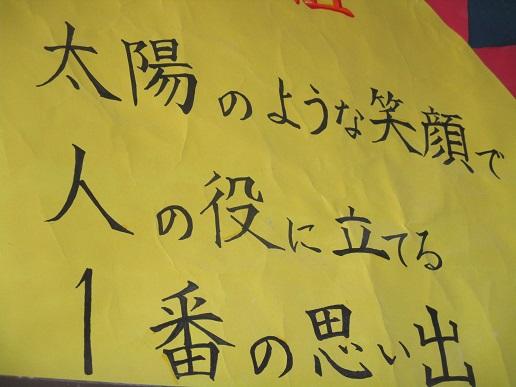 太陽のような笑顔で
人の役に立てる
1番の思い出